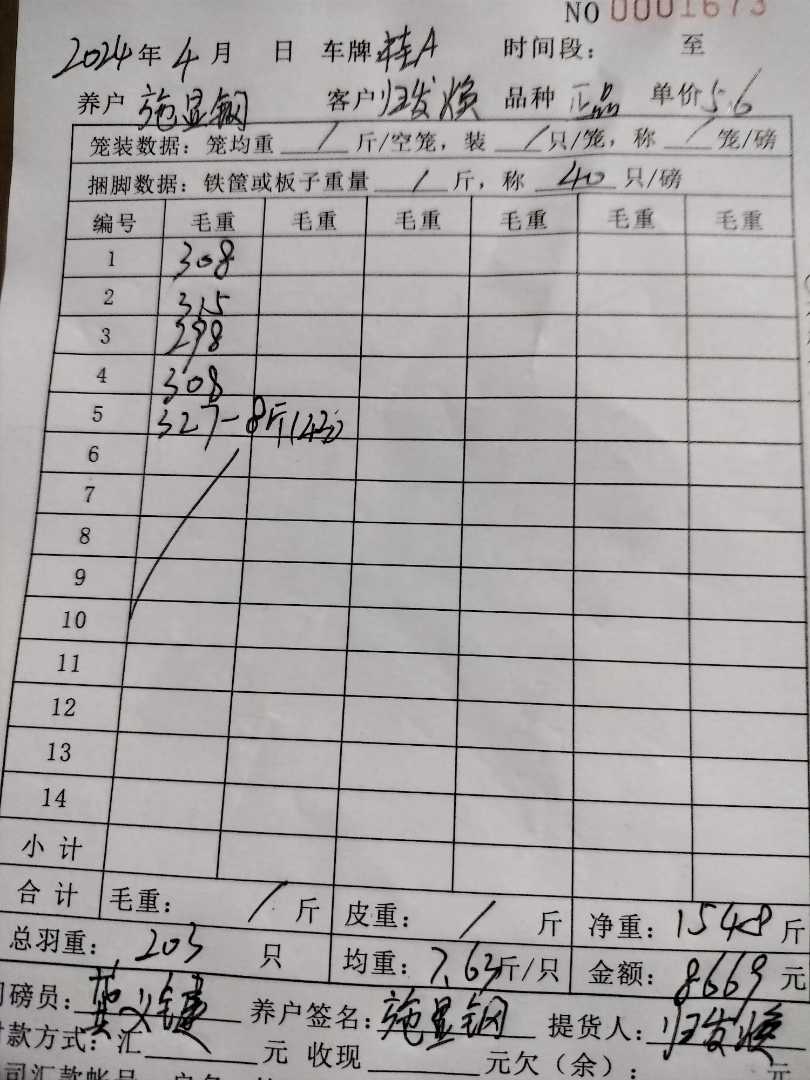 NO 0001673
2024年 4月 日 车牌桂A 时间段: 至
养户 施显钢 客户 归发焕 品种 正品 单价5.6
笼装数据: 笼均重 / 斤/空笼, 装 / 只/笼, 称 / 笼/磅
捆脚数据: 铁筐或板子重量 / 斤, 称 40 只/磅
编号 毛重 毛重 毛重 毛重 毛重 毛重
1 308
2 315
3 298
4 308
5 327-8斤(43)
6
7
8
9
10
11
12
13
14
小计
合计 毛重: / 斤 皮重: / 斤 净重: 1548 斤
总羽重: 203 只 均重: 7.63斤/只 金额: 8669 元
磅员: 义键 养户签名: 施显钢 提货人: 归发焕
款方式: 汇 元 收现 元欠(余): 元
司汇款帐号